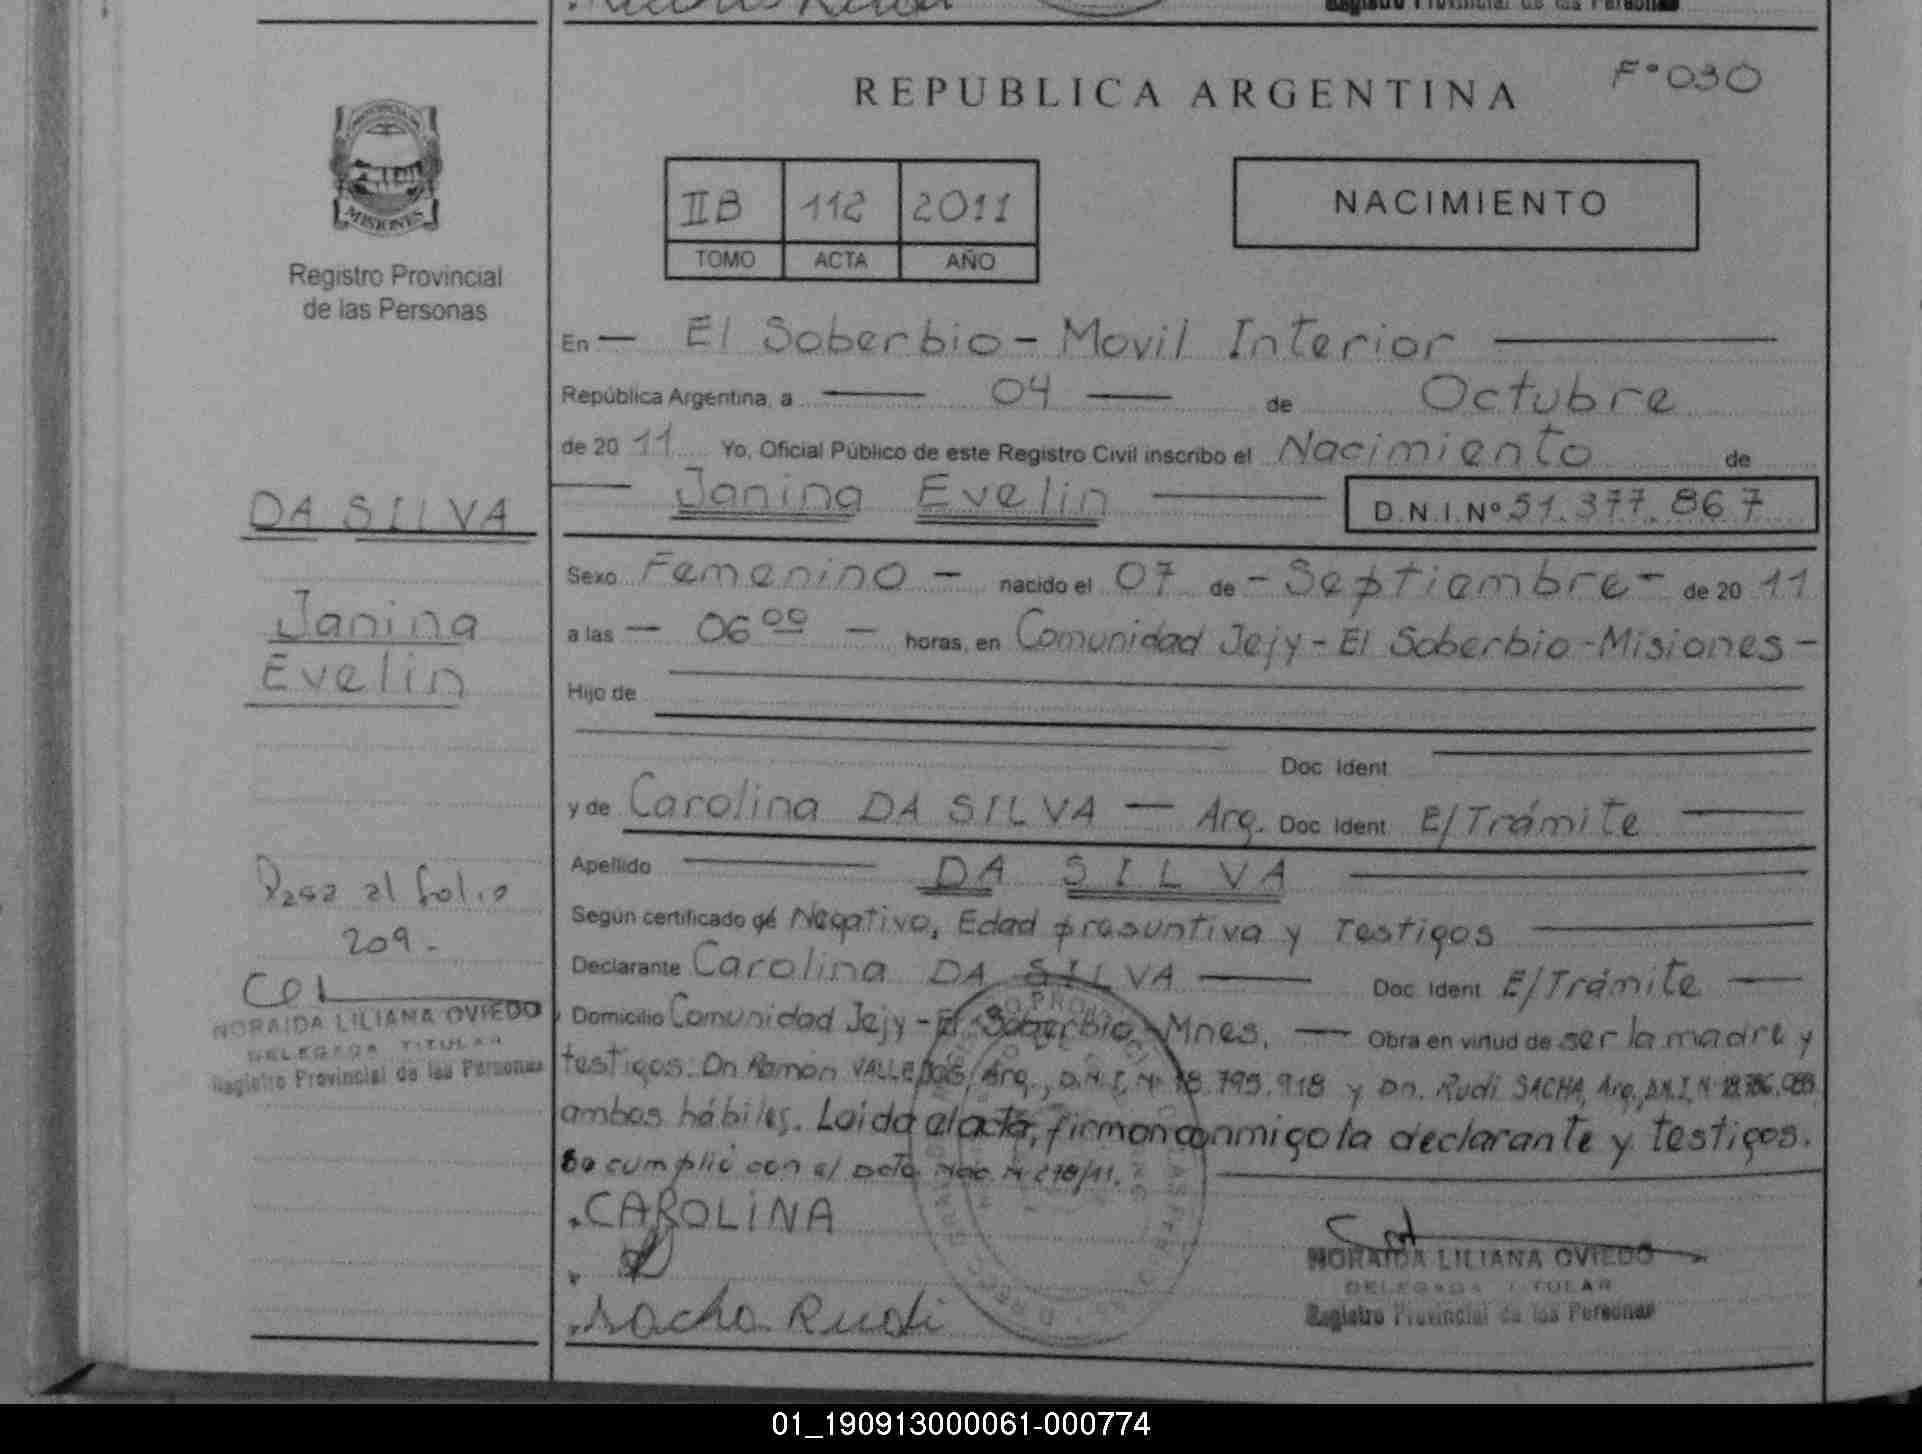 Registro Provincial de las Personas
REPUBLICA ARGENTINA
Fº 030
MISIONES
Registro Provincial
de las Personas
IIB 112 2011
TOMO ACTA AÑO
NACIMIENTO
En — El Soberbio - Movil Interior —
República Argentina, a — 04 — de Octubre
de 2011 Yo, Oficial Público de este Registro Civil inscribo el Nacimiento de
— Janina Evelin — D.N.I.Nº 51.377.867
DA SILVA
Janina
Evelin
Sexo Femenino — nacido el 07 de - Septiembre - de 2011
a las — 06 00 — horas, en Comunidad Jejy - El Soberbio - Misiones -
Hijo de
Doc Ident
y de Carolina DA SILVA — Arg. Doc Ident E/Trámite —
Apellido — DA SILVA —
Según certificado de Negativo, Edad presuntiva y Testigos —
Declarante Carolina DA SILVA — Doc. Ident E/Trámite —
Domicilio Comunidad Jejy - El Soberbio - Mnes. — Obra en virtud de ser la madre y
testigos: Dn Ramón VALLEJOS, Arg., D.N.I. Nº 18.795.918 y Dn. Rudi SACHA, Arg., D.N.I. Nº
ambos hábiles. Leida el acta, firman conmigo la declarante y testigos.
Se cumplió con el Dcto Nac. Nº 278/11.
Pasa al folio
209.-
NORAIDA LILIANA OVIEDO
DELEGADA TITULAR
Registro Provincial de las Personas
.CAROLINA
.Sacha Rudi
NORAIDA LILIANA OVIEDO
DELEGADA TITULAR
Registro Provincial de las Personas
01_190913000061-000774